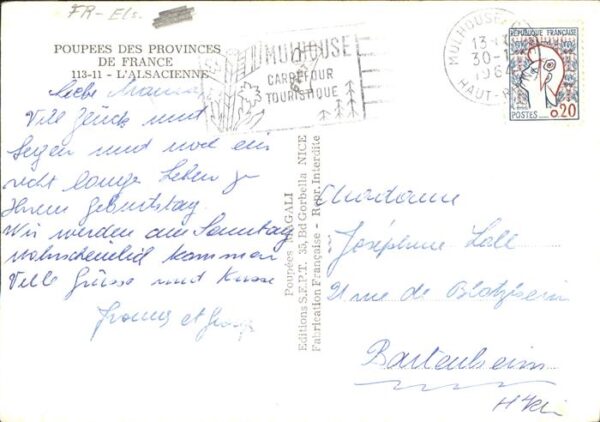 FR-Els.
POUPEES DES PROVINCES
DE FRANCE
113-11 - L'ALSACIENNE
Liebe Mama
Ville Glück und
Segen und noch ein
recht langes Leben zu
Ihrem Geburtstag.
Wir werden am Sonntag
wahrscheinlich kommen
Ville Grüsse und Küsse
et
MULHOUSE
CARREFOUR
TOURISTIQUE
MULHOUSE
13
30-1
1964
HAUT-R
REPUBLIQUE FRANCAISE
POSTES 0,20
Poupées MAGALI
Editions S.E.P.T. 35, Bd Gorbella NICE
Fabrication Française - Repr. Interdite
Madame
Joséphine Loll
21 rue de Blotzheim
Bartenheim